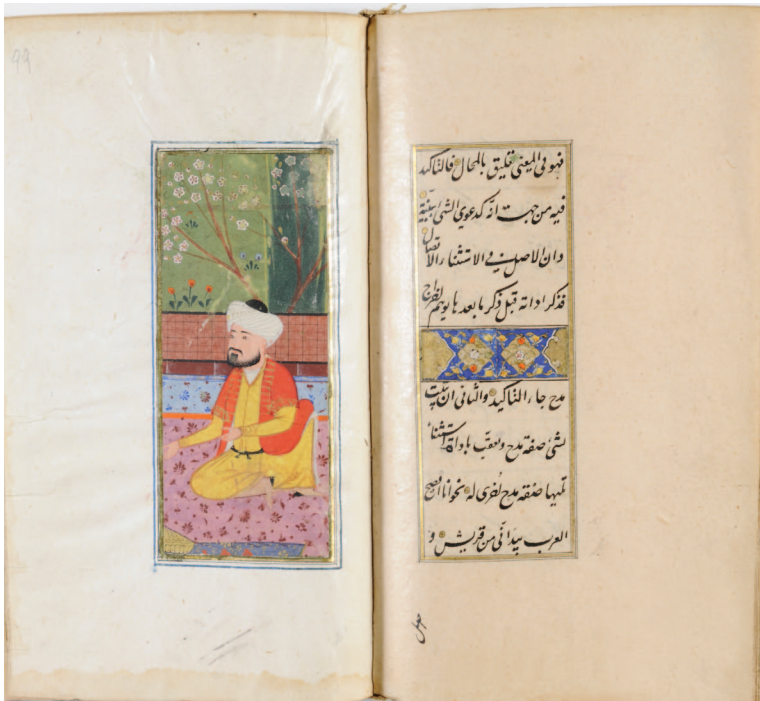 فهو فى المعنى تعليق بالمحال فالتاكيد
فيه من جهت انه كدعوى الشئ ببينة
وان الاصل فى الاستثناء الاتصال
فذكر اداته قبل ذكر ما بعدها يوهم اخراج
مدح جاء التاكيد والثانى ان يثبت
لشئ صفة مدح وتعقب باداة استثناء
تليها صفة مدح اخرى له نحو انا افصح
العرب بيد انى من قريش و
اصل